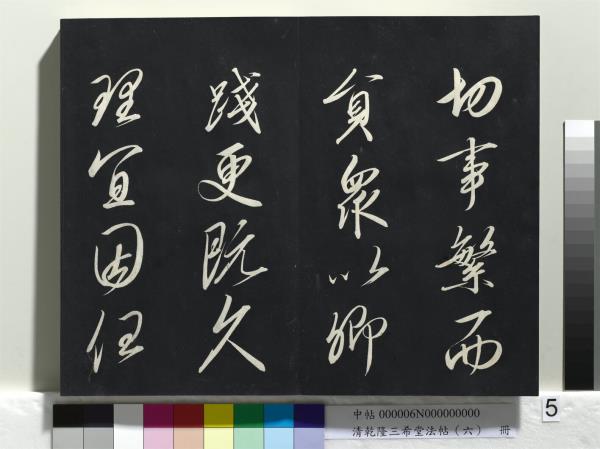 切事繁而
員眾以卿
踐更既久
理宜因任
5
中帖 000006N000000000
清乾隆三希堂法帖(六) 冊